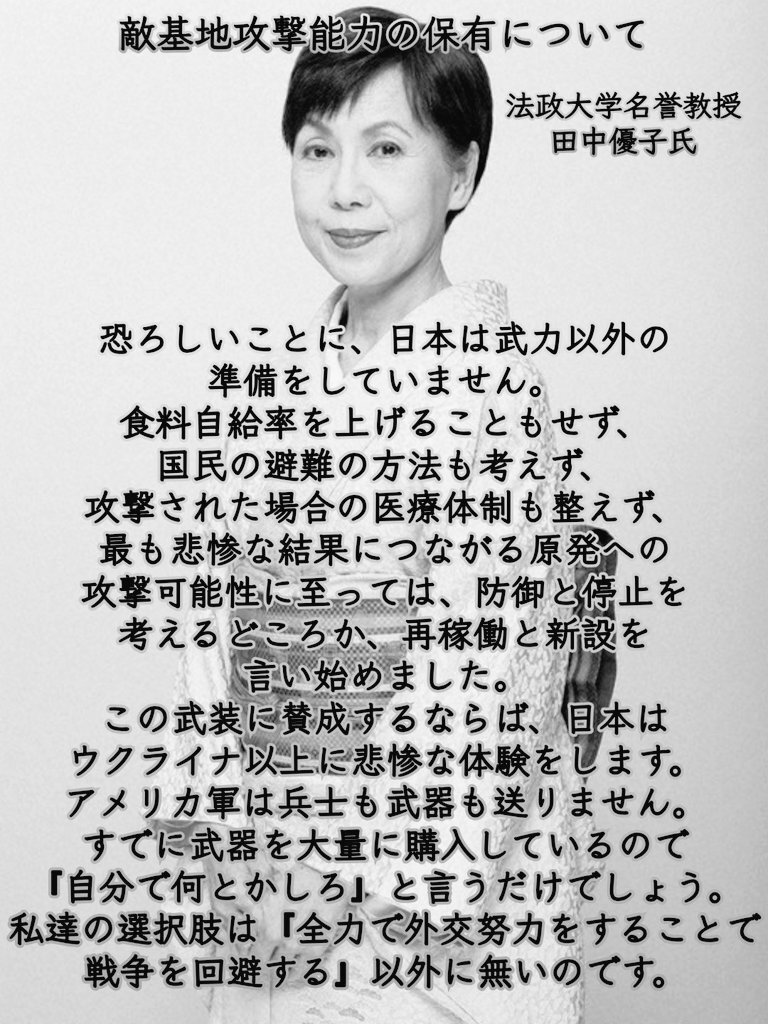 敵基地攻撃能力の保有について
法政大学名誉教授
田中優子氏
恐ろしいことに、日本は武力以外の
準備をしていません。
食料自給率を上げることもせず、
国民の避難の方法も考えず、
攻撃された場合の医療体制も整えず、
最も悲惨な結果につながる原発への
攻撃可能性に至っては、防御と停止を
考えるどころか、再稼働と新設を
言い始めました。
この武装に賛成するならば、日本は
ウクライナ以上に悲惨な体験をします。
アメリカ軍は兵士も武器も送りません。
すでに武器を大量に購入しているので
『自分で何とかしろ』と言うだけでしょう。
私達の選択肢は『全力で外交努力をすることで
戦争を回避する』以外に無いのです。